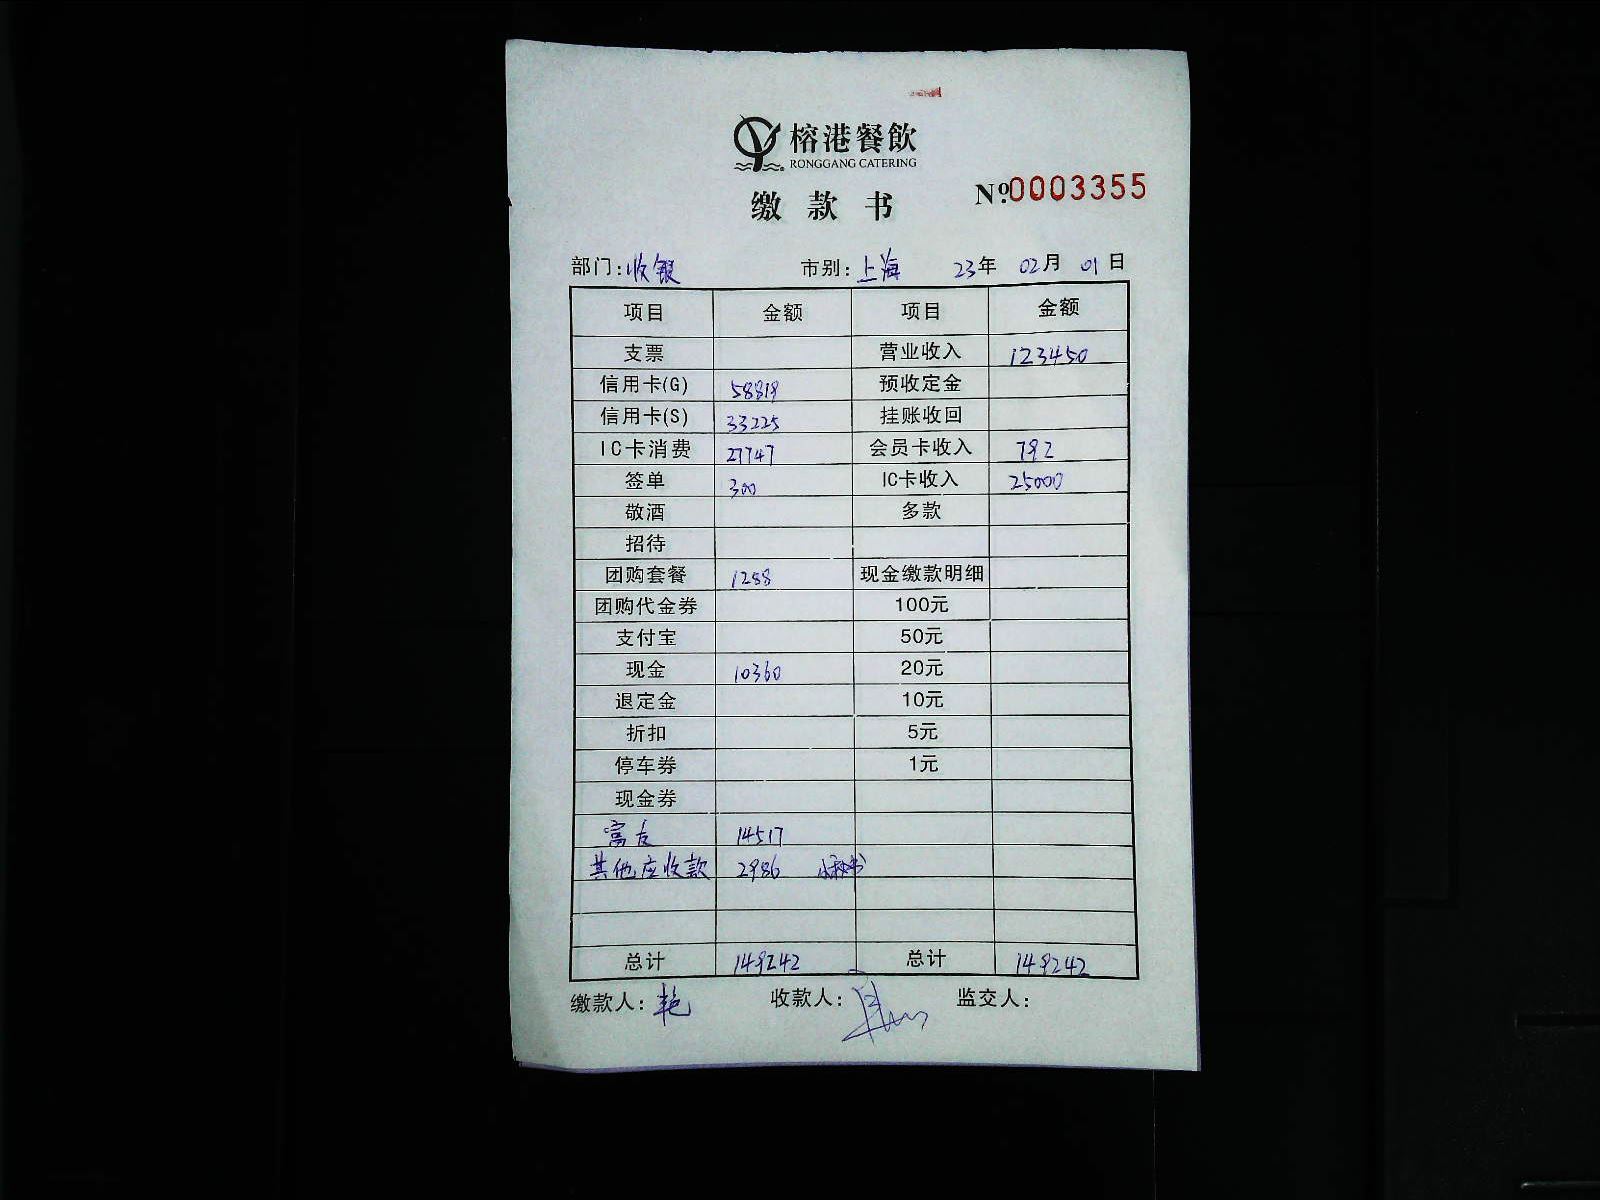 榕港餐飲
RONGGANG CATERING
缴款书 Nº0003355
部门:收银 市别:上海 23年 02月 01日
项目 金额 项目 金额
支票 营业收入 123450
信用卡(G) 58819 预收定金
信用卡(S) 33225 挂账收回
IC卡消费 27747 会员卡收入 792
签单 300 IC卡收入 25000
敬酒 多款
招待
团购套餐 1288 现金缴款明细
团购代金券 100元
支付宝 50元
现金 10360 20元
退定金 10元
折扣 5元
停车券 1元
现金券
富友 14517
其他应收款 2986 小秘书
总计 149242 总计 149242
缴款人:艳 收款人: 监交人: